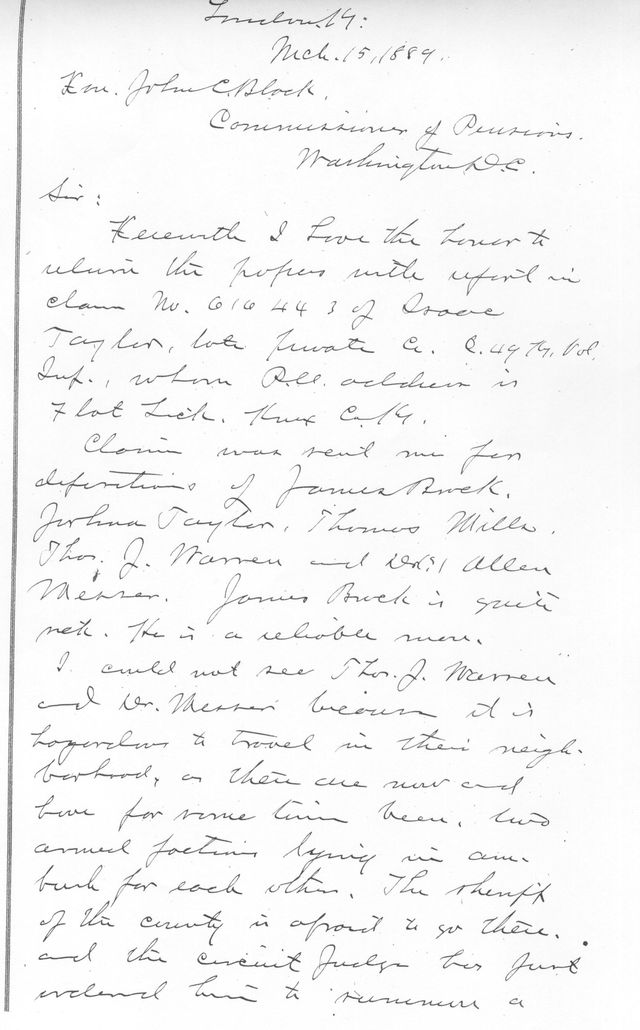 London, Ky:
Mch. 15, 1889.
Hon. John C. Black,
Commissioner of Pensions.
Washington D.C.
Sir:
Herewith I have the honor to
return the papers with report in
claim No. 616443 of Isaac
Taylor, late private Co. 49 Ky. Vol.
Inf., whose P.O. address is
Flat Lick. Knox Co. Ky.
Claim was sent me for
depositions of James
Joshua Taylor, Thomas Mills,
Thos. J. Warren and Allen
Messer. James is quite
He is a reliable man.
I could not see Thos. J. Warren
and Dr. Messer because it is
hazardous to travel in their neigh-
borhood, as there are now and
have for some time been, two
armed factions lying in am-
bush for each other. The sheriff
of the county is afraid to go there.
and the circuit Judge has just
ordered him to summon a